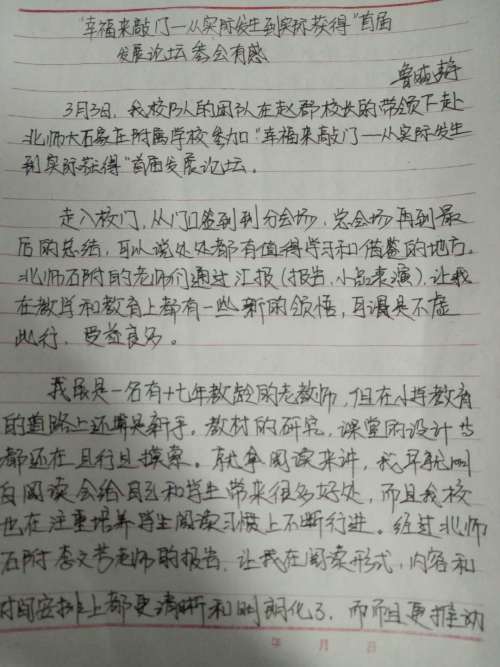 “幸福来敲门—从实际发生到实际获得”首届
发展论坛参会有感
鲁晓静
3月3日，我校8人的团队在赵郡校长的带领下赴
北师大石家庄附属学校参加“幸福来敲门—从实际发生
到实际获得”首届发展论坛。
走入校门，从门口签到到分会场，总会场再到最
后的总结，可以说处处都有值得学习和借鉴的地方。
北师石附的老师们通过汇报（报告，小品表演），让我
在教学和教育上都有一些新的领悟，可谓是不虚
此行，受益良多。
我虽是一名有十七年教龄的老教师，但在小学教育
的道路上还算是新手。教材的研究，课堂的设计等
都还在且行且摸索。就拿阅读来讲，我早就明
白阅读会给自己和学生带来很多好处，而且我校
也在注重培养学生阅读习惯上不断行进。经过北师
石附李文芳老师的报告，让我在阅读形式，内容和
时间安排上都更清晰和明朗化了，而且更推动
年 月 日